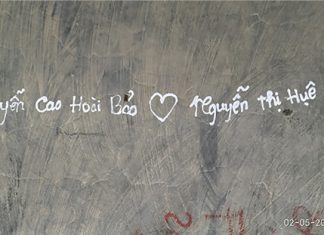 yễn Cao Hoài Bảo ♡ Nguyễn Thị Huệ
02-05-20